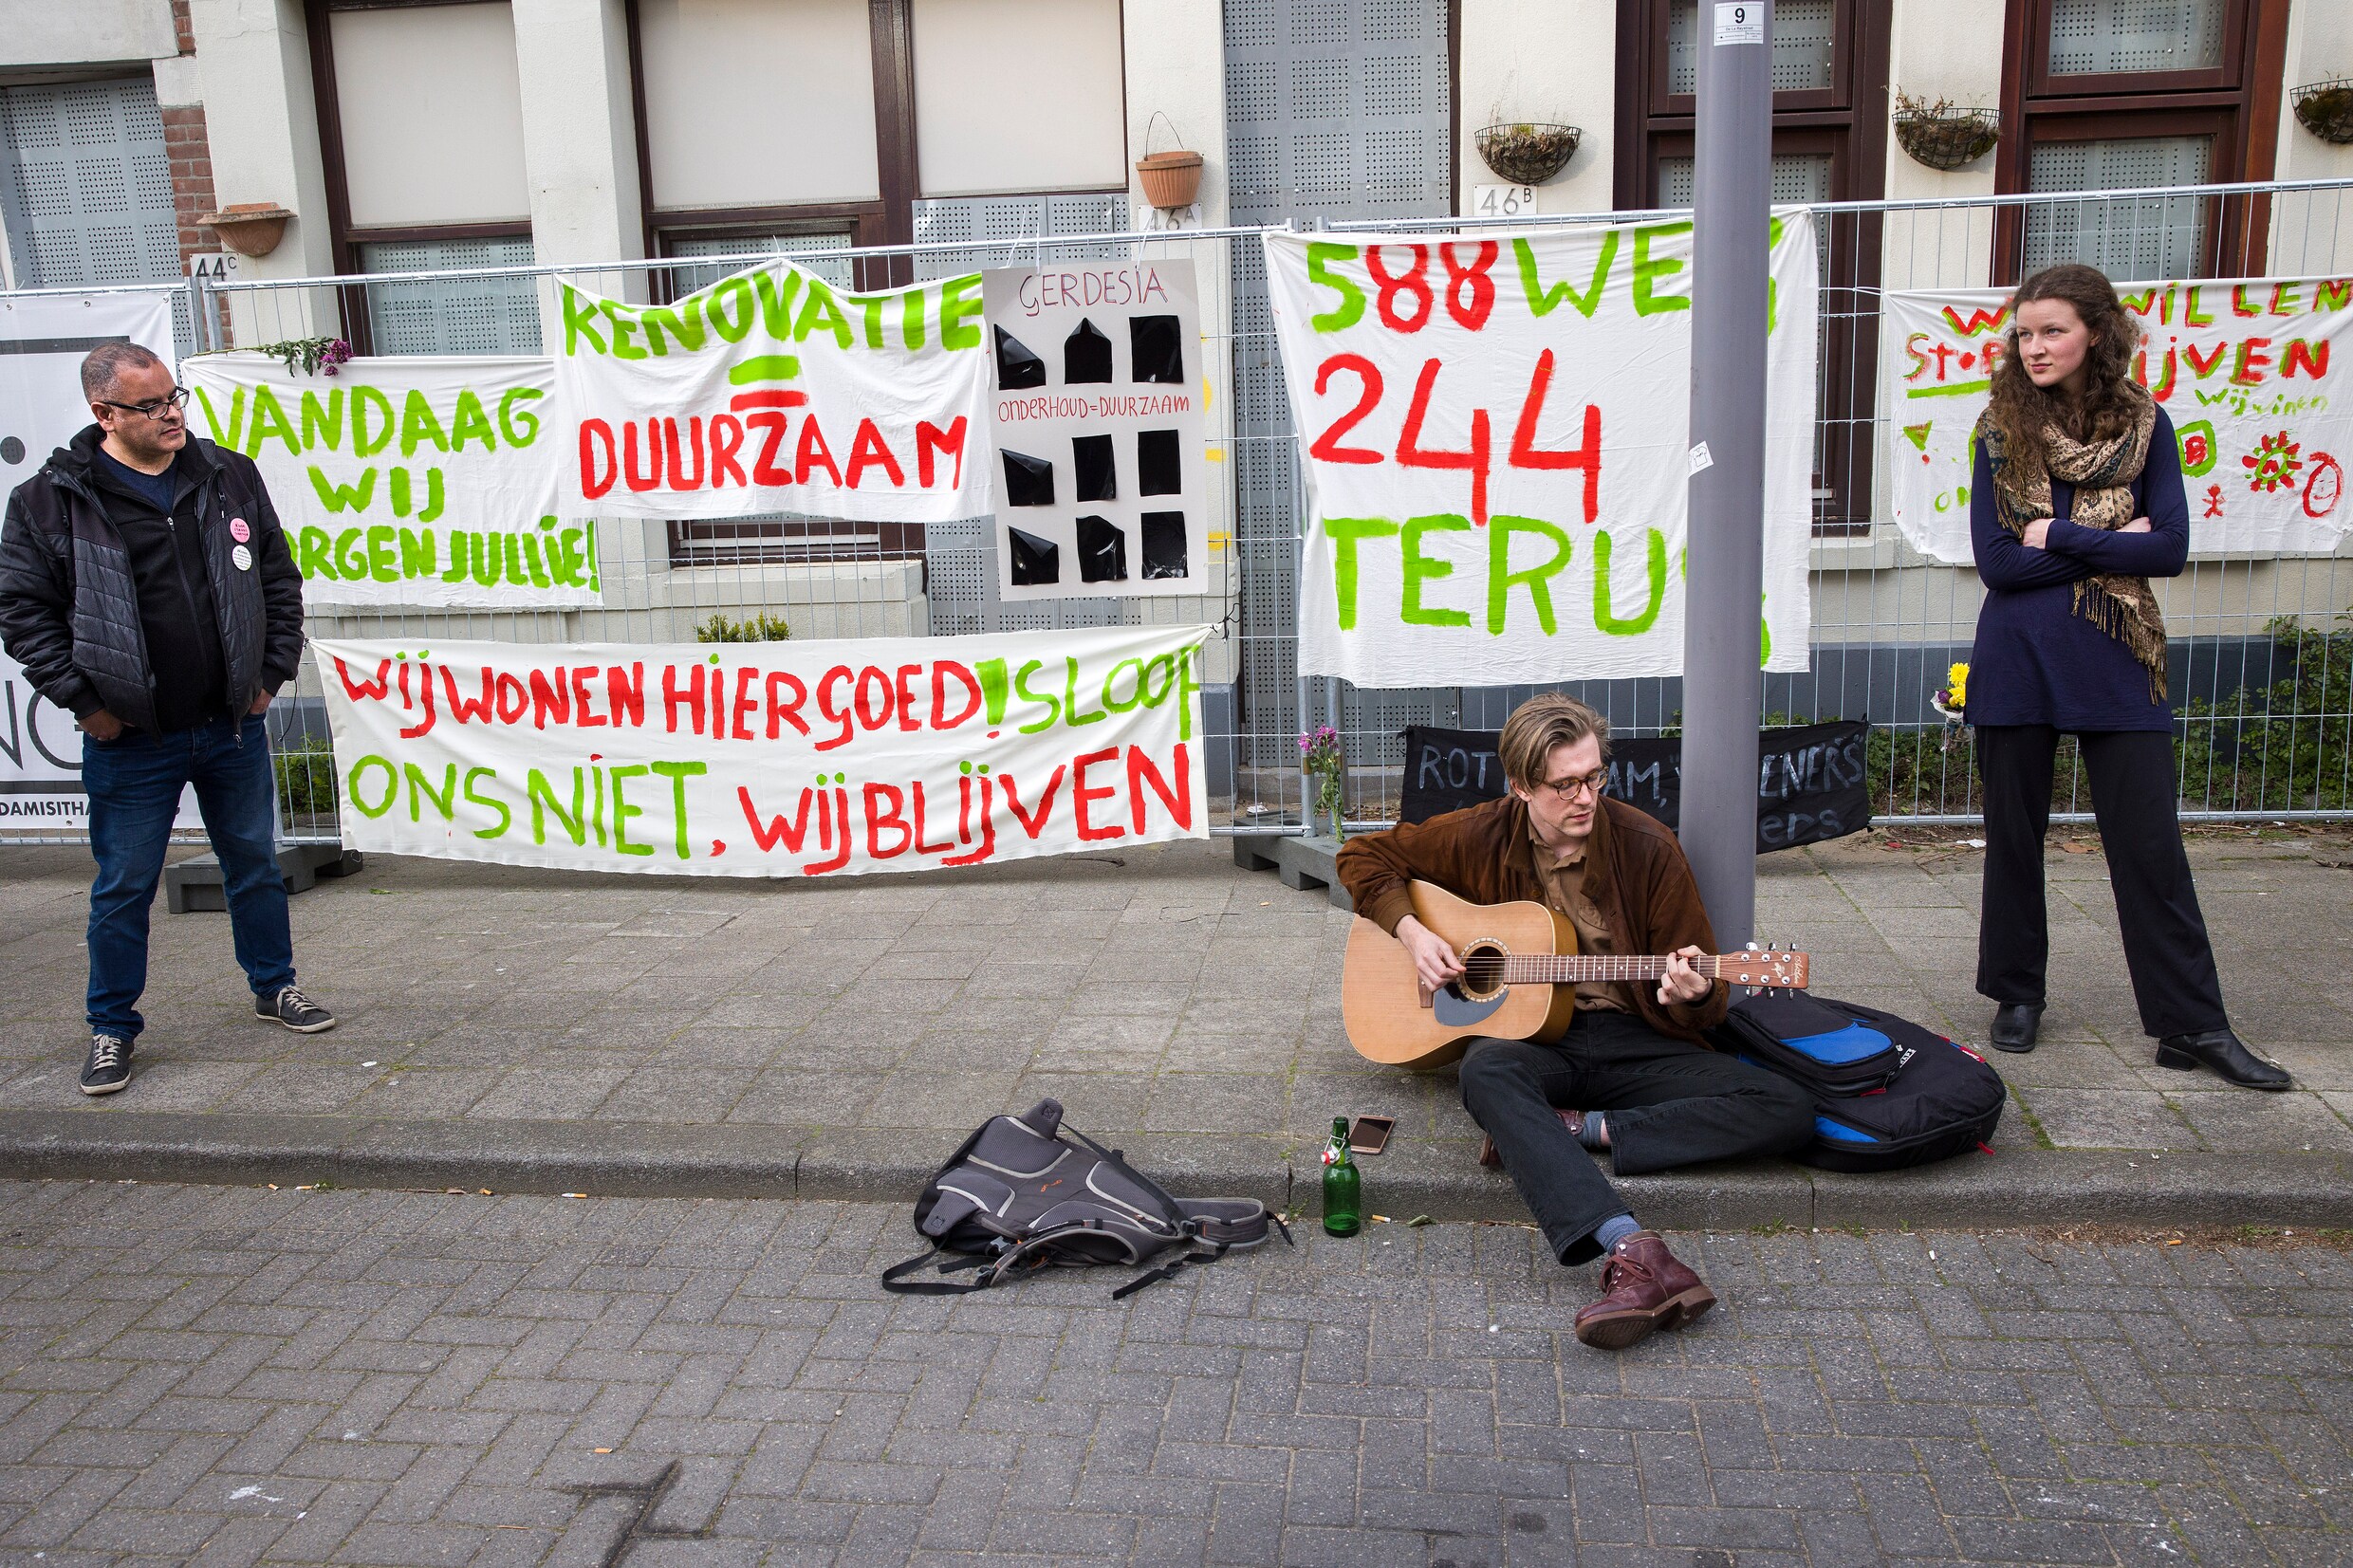 9
44C
46A
46B
VANDAAG
WIJ
ORGEN JULLIE!
RENOVATIE
=
DUURZAAM
GERDESIA
ONDERHOUD=DUURZAAM
588 WE
244
TERU
WILLEN
IJVEN
wij winen
B
WIJ WONEN HIER GOED! SLOOP
ONS NIET, WIJ BLIJVEN
ROT AM, ENERS
ers
DAMISITHA